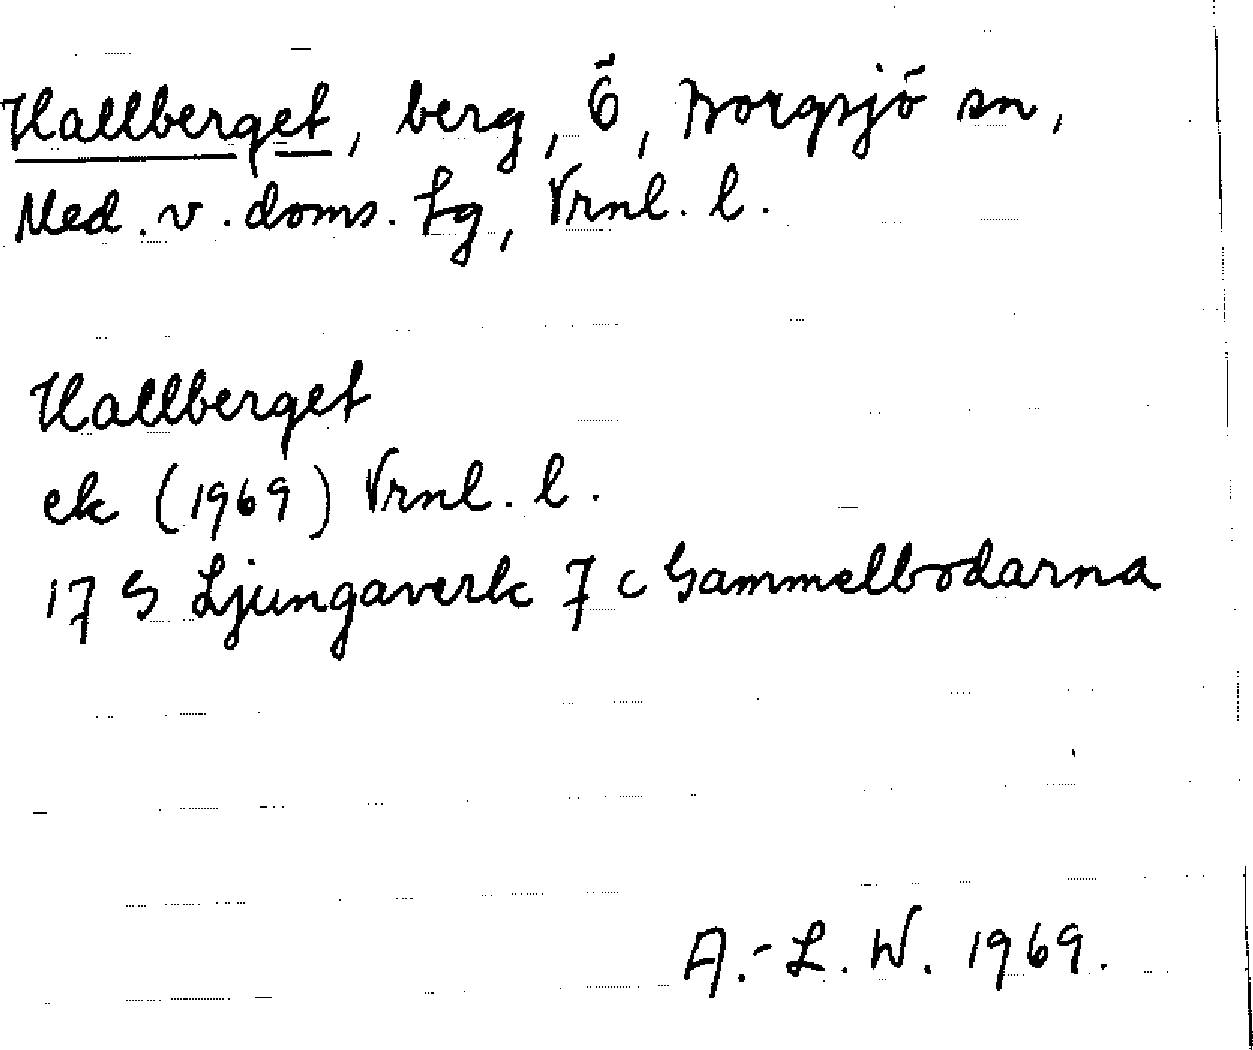 Hallberget, berg, Ö, Borgsjö sn,
Med. v. doms. tg, Vrnl. l.
Hallberget
ek (1969) Vrnl. l.
17 G Ljungaverk 7 c Gammelbodarna
A.-L. W. 1969.